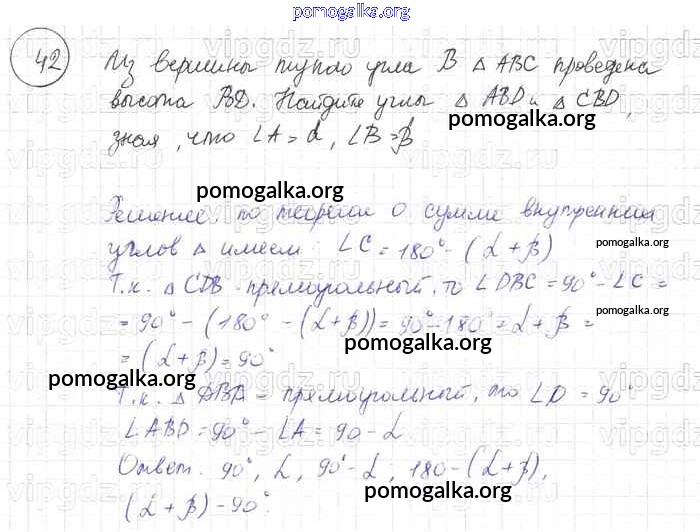 pomogalka.org
42 Из вершины тупого угла B △ ABC проведена
высота BD. Найдите углы △ ABD и △ CBD,
pomogalka.org
зная, что ∠A = α, ∠B = β
pomogalka.org
Решение: по теореме о сумме внутренних
углов △ имеем: ∠C = 180° - (α + β)
pomogalka.org
Т.к. △ CDB - прямоугольный, то ∠DBC = 90° - ∠C =
pomogalka.org
= 90° - (180° - (α + β)) = 90° - 180° = α + β =
pomogalka.org
= (α + β) = 90°
pomogalka.org
Т.к. △ DBA - прямоугольный, то ∠D = 90°
∠ABD = 90° - ∠A = 90 - α
Ответ: 90°, α, 90° - α, 180 - (α + β),
pomogalka.org
(α + β) - 90°.